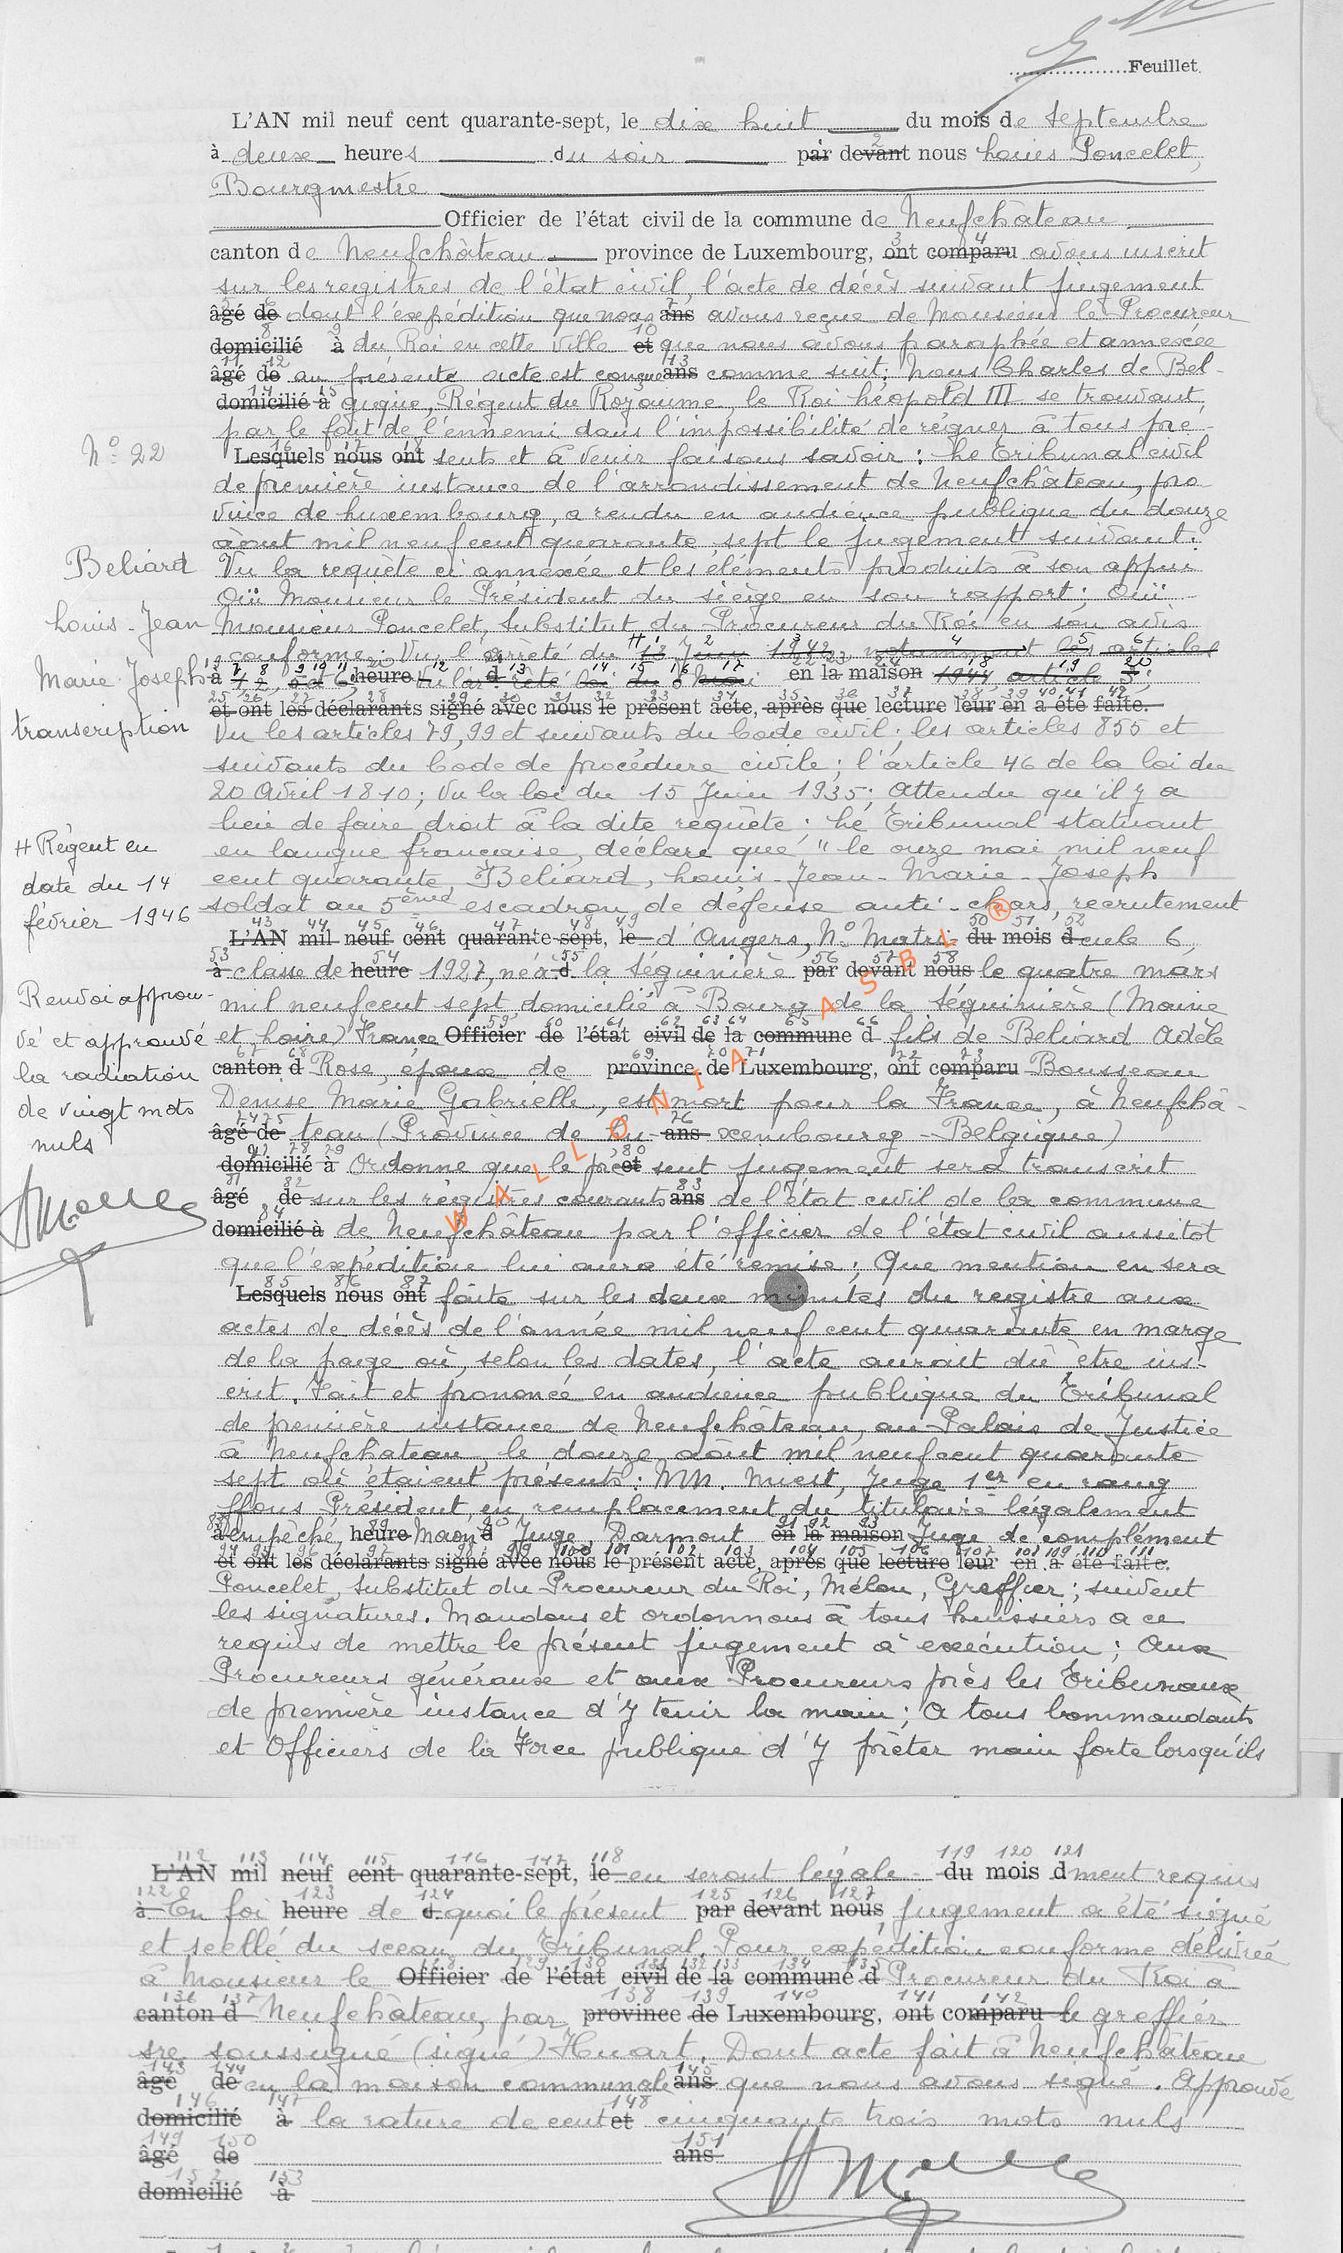 Feuillet
L'AN mil neuf cent quarante-sept, le dix huit du mois de Septembre
à deux heures du soir par devant nous Louis Poncelet,
Bourgmestre
Officier de l'état civil de la commune de Neufchâteau
canton de Neufchâteau province de Luxembourg, ont comparu avons inscrit
sur les registres de l'état civil, l'acte de décès suivant jugement
âgé de dont l'expédition que nous ans avons reçue de Monsieur le Procureur
domicilié à du Roi en cette ville et que nous avons paraphée et annexée
âgé de au présente acte est conçue ans comme suit: Nous Charles de Bel-
domicilié à gique, Régent du Royaume, le Roi Léopold III se trouvant,
par le fait de l'ennemi dans l'impossibilité de régner à tous pré-
N° 22
Lesquels nous ont sents et à venir faisons savoir: Le Tribunal civil
de première instance de l'arrondissement de Neufchâteau, pro
vince de Luxembourg, a rendu en audience publique du douze
août mil neuf cent quarante sept le jugement suivant:
Beliard
Louis-Jean
Marie-Joseph
transcription
Vu la requête ci annexée et les éléments produits à son appui
Ouï Monsieur le Président du siège en son rapport; Ouï
Monsieur Poncelet, Substitut du Procureur du Roi en son avis
conforme. Vu l'arrêté du # 12 Juin 1942, notamment les articles
à heure en la maison 1944 article 5;
et ont les déclarants signé avec nous le présent acte, après que lecture leur en a été faite.
Vu les articles 79, 99 et suivants du Code civil; les articles 855 et
suivants du Code de procédure civile; l'article 46 de la loi du
20 Avril 1810; Vu la loi du 15 Juin 1935; Attendu qu'il y a
lieu de faire droit à la dite requête; Le Tribunal statuant
en langue française, déclare que " le onze mai mil neuf
cent quarante, Beliard, Louis-Jean-Marie-Joseph
soldat au 5ème escadron de défense anti-chars, recrutement
# Régent en
date du 14
février 1946
L'AN mil neuf cent quarante-sept, le d'Angers, N° Matri- du mois d cule 6,
à classe de heure 1927, né à d la Séguinière par devant nous le quatre mars
mil neuf cent sept, domicilié à Bourg de la Séguinière (Maine
et Loire) France Officier de l'état civil de la commune d fils de Beliard Adèle
canton d Rose, époux de province de Luxembourg, ont comparu Bousseau
Denise Marie Gabrielle, est mort pour la France, à Neufchâ-
âgé de teau (Province de Lu- ans xembourg - Belgique)
domicilié à Ordonne que le pré et sent jugement sera transcrit
âgé de sur les registres courants ans de l'état civil de la commune
domicilié à de Neufchâteau par l'officier de l'état civil aussitot
que l'expédition lui aura été remise; Que mention en sera
Renvoi approu-
vé et approuvé
la radiation
de vingt mots
nuls
WALLONIA ASBL ®
Lesquels nous ont faite sur les deux minutes du registre aux
actes de décès de l'année mil neuf cent quarante en marge
de la page où, selon les dates, l'acte aurait dû être ins-
crit. Fait et prononcé en audience publique du Tribunal
de première instance de Neufchâteau, au Palais de Justice
à Neufchâteau, le douze août mil neuf cent quarante
sept où étaient présents: MM. Juge 1er en rang
ffons Président, en remplacement du titulaire légalement
à empêché, heure d Juge, Darmont en la maison Juge de complément
et ont les déclarants signé avec nous le présent acte, après que lecture leur en a été faite.
Poncelet, Substitut du Procureur du Roi, Mélon, Greffier; suivent
les signatures. Mandons et ordonnons à tous huissiers a ce
requis de mettre le présent jugement à exécution; Aux
Procureurs généraux et aux Procureurs près les Tribunaux
de première instance d'y tenir la main; A tous Commandants
et Officiers de la Force publique d'y prêter main forte lorsqu'ils
L'AN mil neuf cent quarante-sept, le en seront légale- du mois d ment requis
à En foi heure de d quoi le présent par devant nous jugement a été signé
et scellé du sceau du Tribunal. Pour expédition conforme délivrée
à Monsieur le Officier de l'état civil de la commune d Procureur du Roi à
canton d Neufchâteau, par province de Luxembourg, ont comparu le greffier
sre soussigné (signé) Huart. Dont acte fait à Neufchâteau
âgé de en la maison communale ans que nous avons signé. Approuvé
domicilié à la rature de cent et cinquante trois mots nuls
âgé de ans
domicilié à